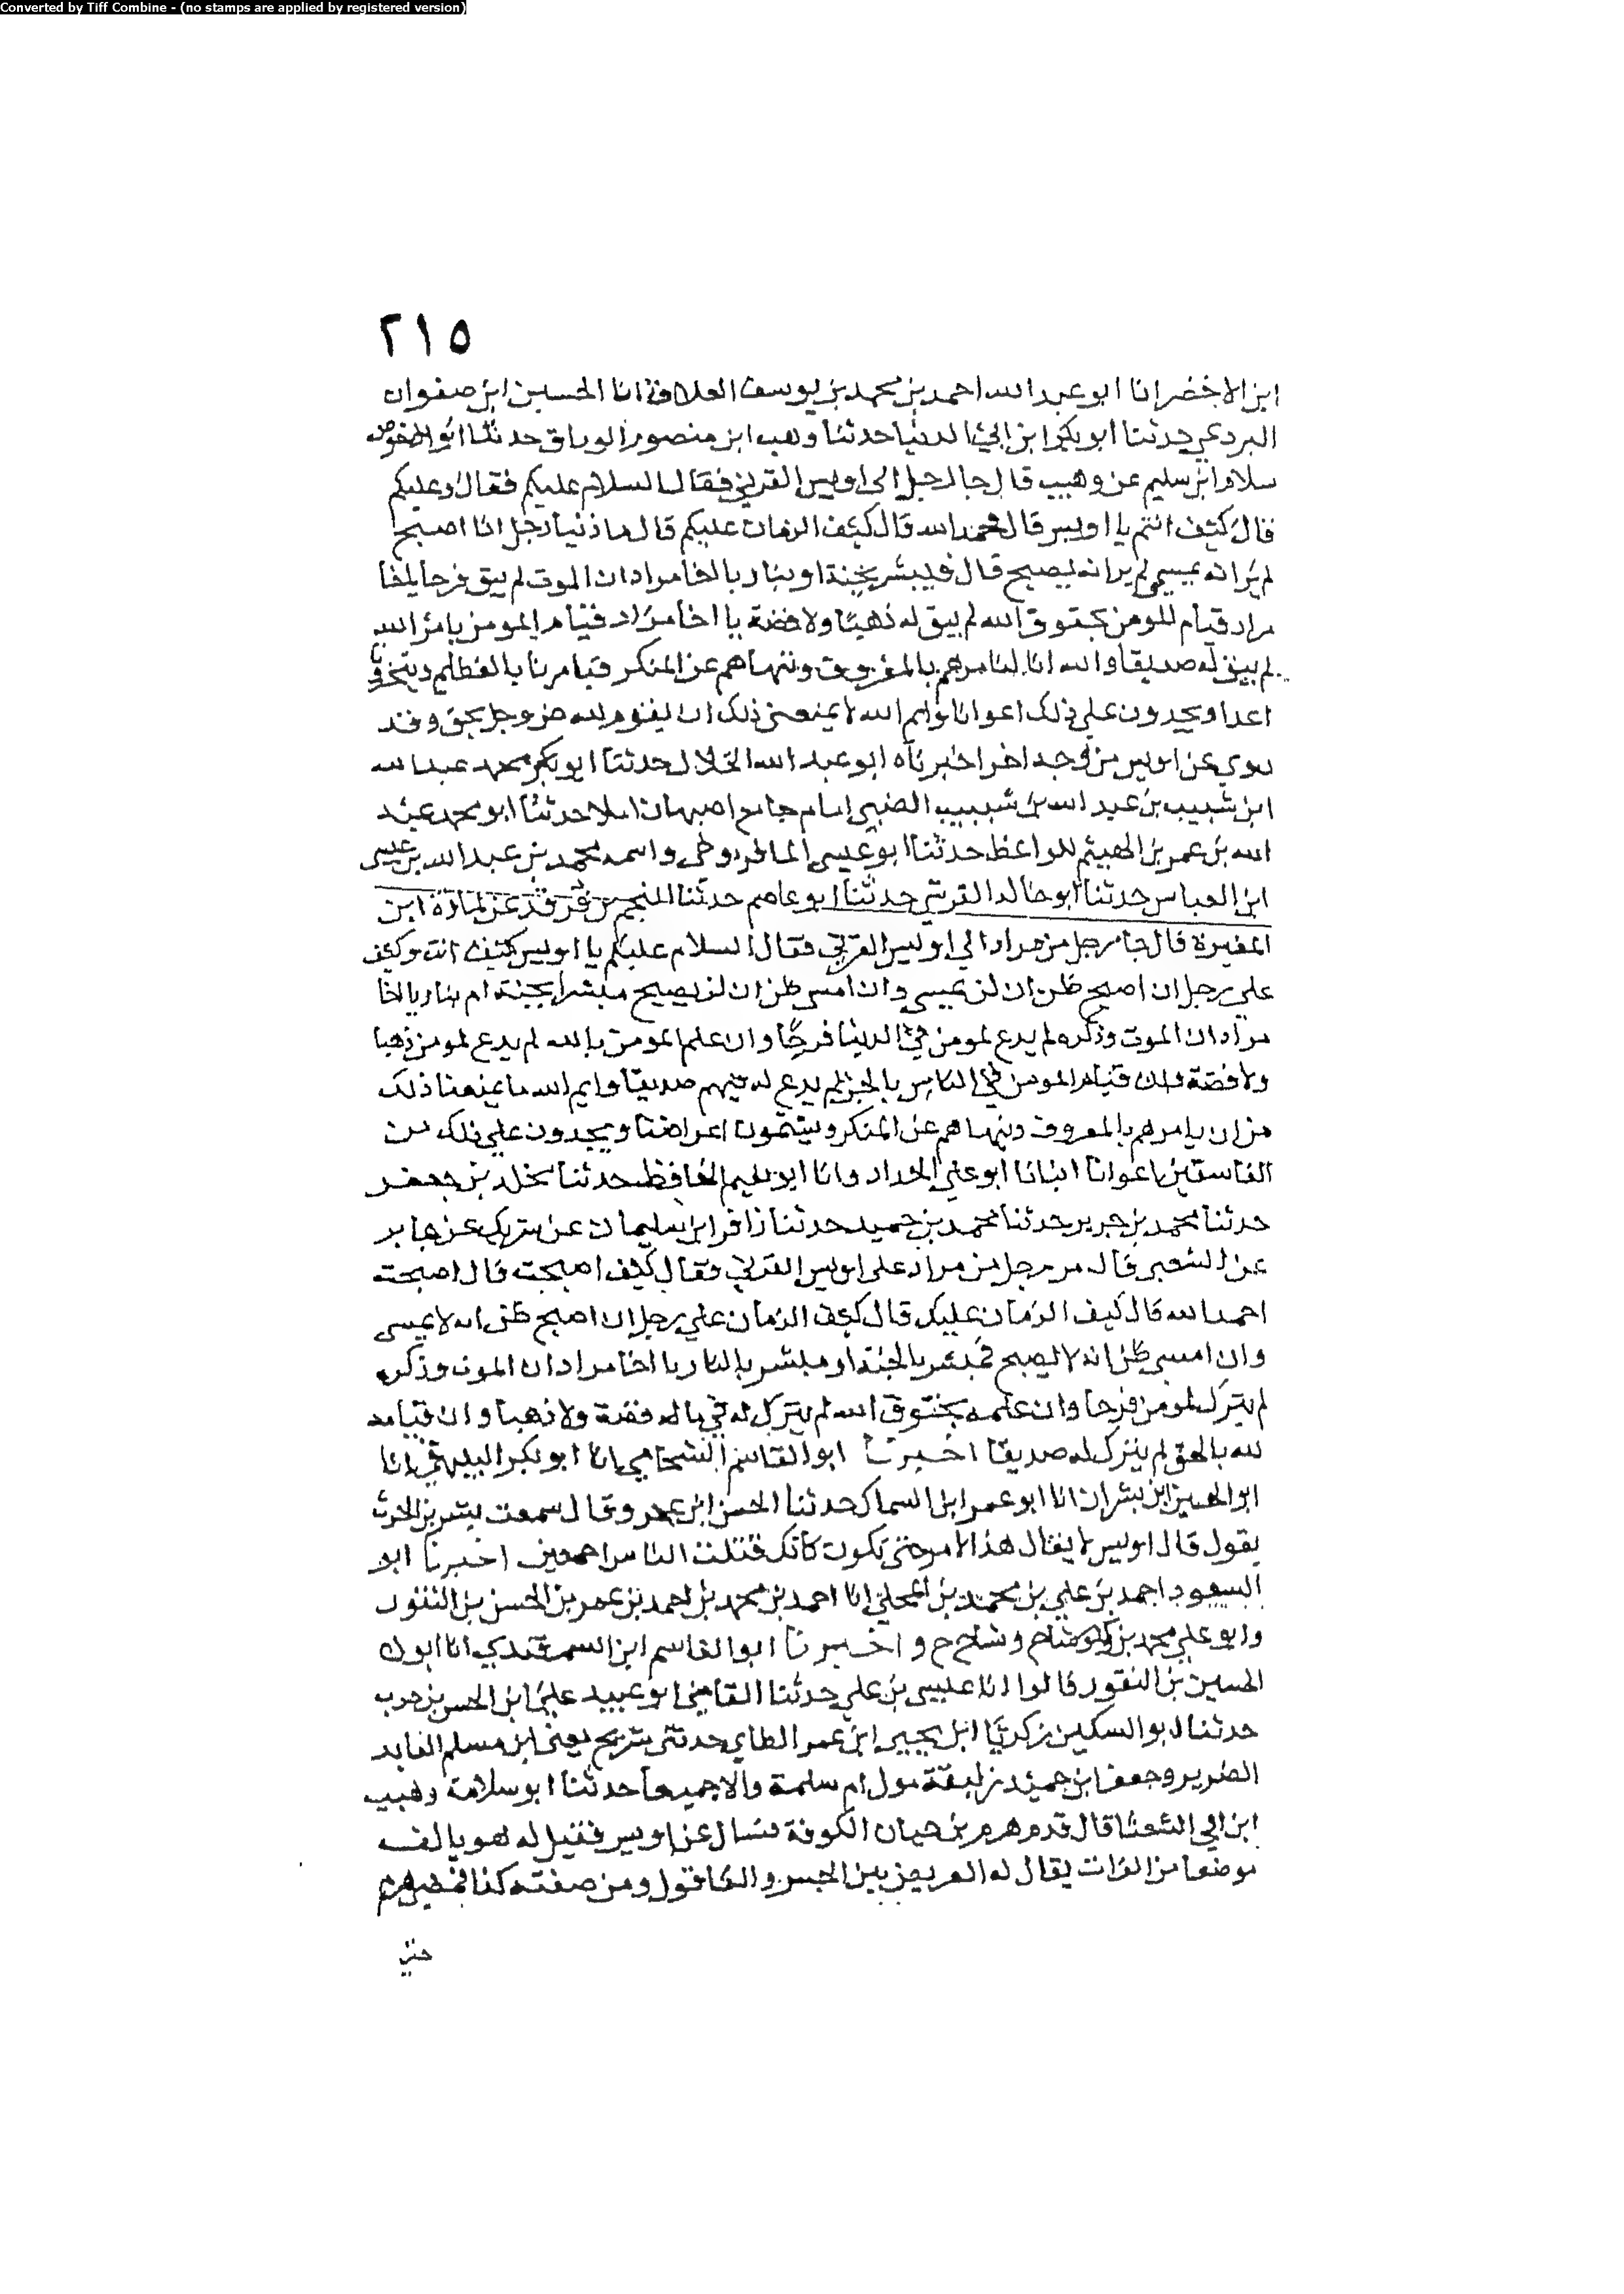 Converted by Tiff Combine - (no stamps are applied by registered version)
٢١٥
ابن الاخضر انا ابو عبد الله احمد بن محمد بن يوسف العلاف انا الحسين ابن صفوان
البردعي حدثنا ابو بكر ابن ابي الدنيا حدثنا وهب ابن منصور الوراق حدثنا ابو الاحوص
سلام ابن سليم عن وهيب قال جا رجل الى اويس القرني فقال السلام عليكم فقال وعليكم
قال كيف انتم يا اويس قال محمد الله قال كيف الزمان عليكم قال ما ذنيا رجل اذا اصبح
لم ير انه يمسي لم ير انه يصبح قال فيبشر بجنة او بنار يا اخا مراد ان الموت لم يبق فرحا يا اخا
مراد قيام المومن بحقوق الله لم يبق له ذهبا ولا فضة يا اخا مراد قيام المومن بامر الله
لم يبق له صديقا والله انا لنامرهم بالمعروف وننهاهم عن المنكر فيامرنا بالعظايم ويتخذونا
اعدا ويجدون علي ذلك اعوانا وايم الله لا يمنعني ذلك ان يقوم لله عز وجل بحق وقد
روي عن اويس من وجه اخر اخبرناه ابو عبد الله الخلال حدثنا ابو بكر محمد عبد الله
ابن شبيب بن عبد الله بن شبيب الضبي امام جامع اصبهان املا حدثنا ابو محمد عبد
الله بن عمر بن الهيثم الواعظ حدثنا ابو عيسى واسمه محمد بن عبد الله بن عيسى
ابن العباس حدثنا ابو خالد القرشي حدثنا ابو عاصم حدثنا المنجم بن فرقد عن ابن
المغيرة قال جا رجل من مراد الي اويس القرني فقال السلام عليكم يا اويس كيف انت وكيف
علي رجل ان اصبح ظن ان لن يمسي وان امسى ظن ان لن يصبح مبشر بجنة ام بنار يا اخا
مراد ان الموت وذكره لم يدع لمومن في الدنيا فرحا وان علم المومن بالله لم يدع لمومن ذهبا
ولا فضة وان قيام المومن في الناس بالحق لم يدع له فيهم صديقا وايم الله ما يمنعنا ذلك
من ان يامرهم بالمعروف وينهاهم عن المنكر ويشتمون اعراضنا ويجدون علي ذلك من
الفاسقين اعوانا انبانا ابو علي الحداد وانا ابو نعيم الحافظ حدثنا مخلد بن جعفر
حدثنا محمد بن جرير حدثنا محمد بن حميد حدثنا زافر ابن سليمان عن شريك عن جابر
عن الشعبي قال مر رجل من مراد على اويس القرني فقال كيف اصبحت قال اصبحت
احمد الله قال كيف الزمان عليك قال كيف الزمان علي رجل ان اصبح ظن انه لا يمسى
وان امسي ظن انه لا يصبح فمبشر بالجنة او مبشر بالنار يا اخا مراد ان الموت وذكره
لم يترك لمومن فرحا وان علمه بحقوق الله لم يترك له في ماله فضة ولا ذهبا وان قيامه
لله بالحق لم يترك له صديقا اخبرنا ابو القاسم الشحامي انا ابو بكر البيهقي انا
ابو الحسين ابن بشران انا ابو عمر ابن السماك حدثنا الحسن ابن عمرو قال سمعت بشر بن الحرث
يقول قال اويس لا ينال هذا الامر حتى تكون كانك قتلت الناس اجمعين اخبرنا ابو
السعود احمد بن علي بن محمد بن المجلي انا احمد بن محمد بن احمد بن عمر بن الحسن بن النقور
وابو علي محمد بن وشاح ح واخبرنا ابو القاسم ابن السمرقندي انا ابو
الحسين بن النقور قالوا انا عيسى بن علي حدثنا القاضي ابو عبيد علي ابن الحسن بن حرب
حدثنا ابو السكين زكريا ابن يحيى ابن عمر الطاي حدثني شريح يعنى ابن مسلم العابد
الضرير وجعفر ابن حميد مولى ام سلمة والا جميعا حدثنا ابو سلامة وهيب
ابن ابي الشعثا قال قدم هرم بن حيان الكوفة فسال عن اويس فقيل له هو يالف
موضعا من الفرات يقال له العريض بين الجسر والعاقول ومن صفته كذا فمضى هرم
حتى